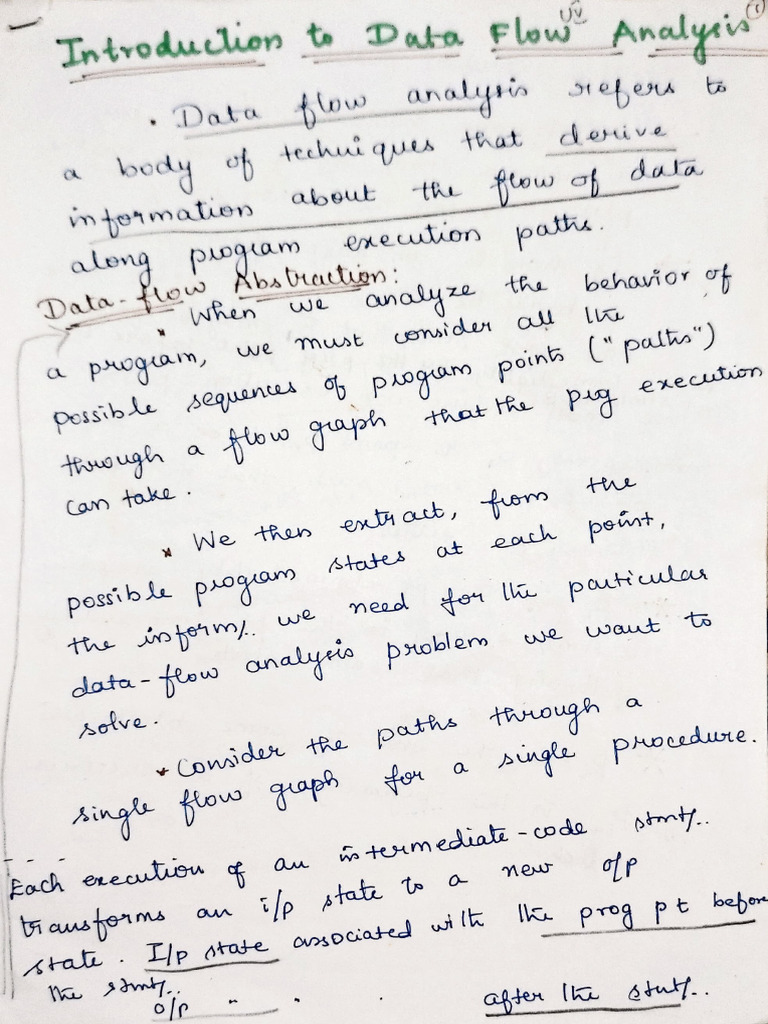 Introduction to Data Flow Analysis
• Data flow analysis refers to
a body of techniques that derive
information about the flow of data
along program execution paths.
Data-flow Abstraction:
* When we analyze the behavior of
a program, we must consider all the
possible sequences of program points ("paths")
through a flow graph that the prg execution
can take.
* We then extract, from the
possible program states at each point,
the inform/.. we need for the particular
data-flow analysis problem we want to
solve.
* Consider the paths through a
single flow graph for a single procedure.
Each execution of an intermediate-code stmt/..
transforms an i/p state to a new o/p
state. I/p state associated with the prog pt before
the stmt/..
o/p " " . after the stmt/..